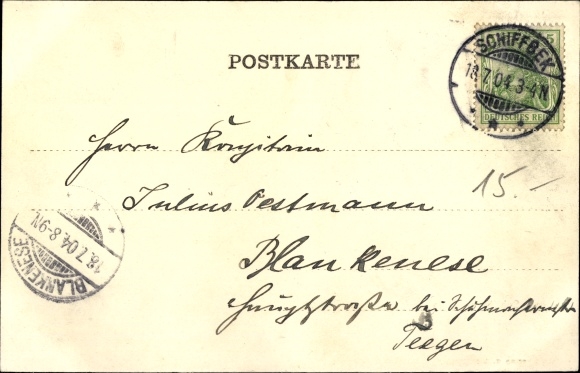 POSTKARTE
5
DEUTSCHES REICH
SCHIFFBEK
18.7.04.3-4N
Herrn Kapitain
15.-
Julius Oestmann
BLANKENESE
18.7.04.8-9N
Blankenese
Hauptstraße bei Schuhmachermstr
Teegen